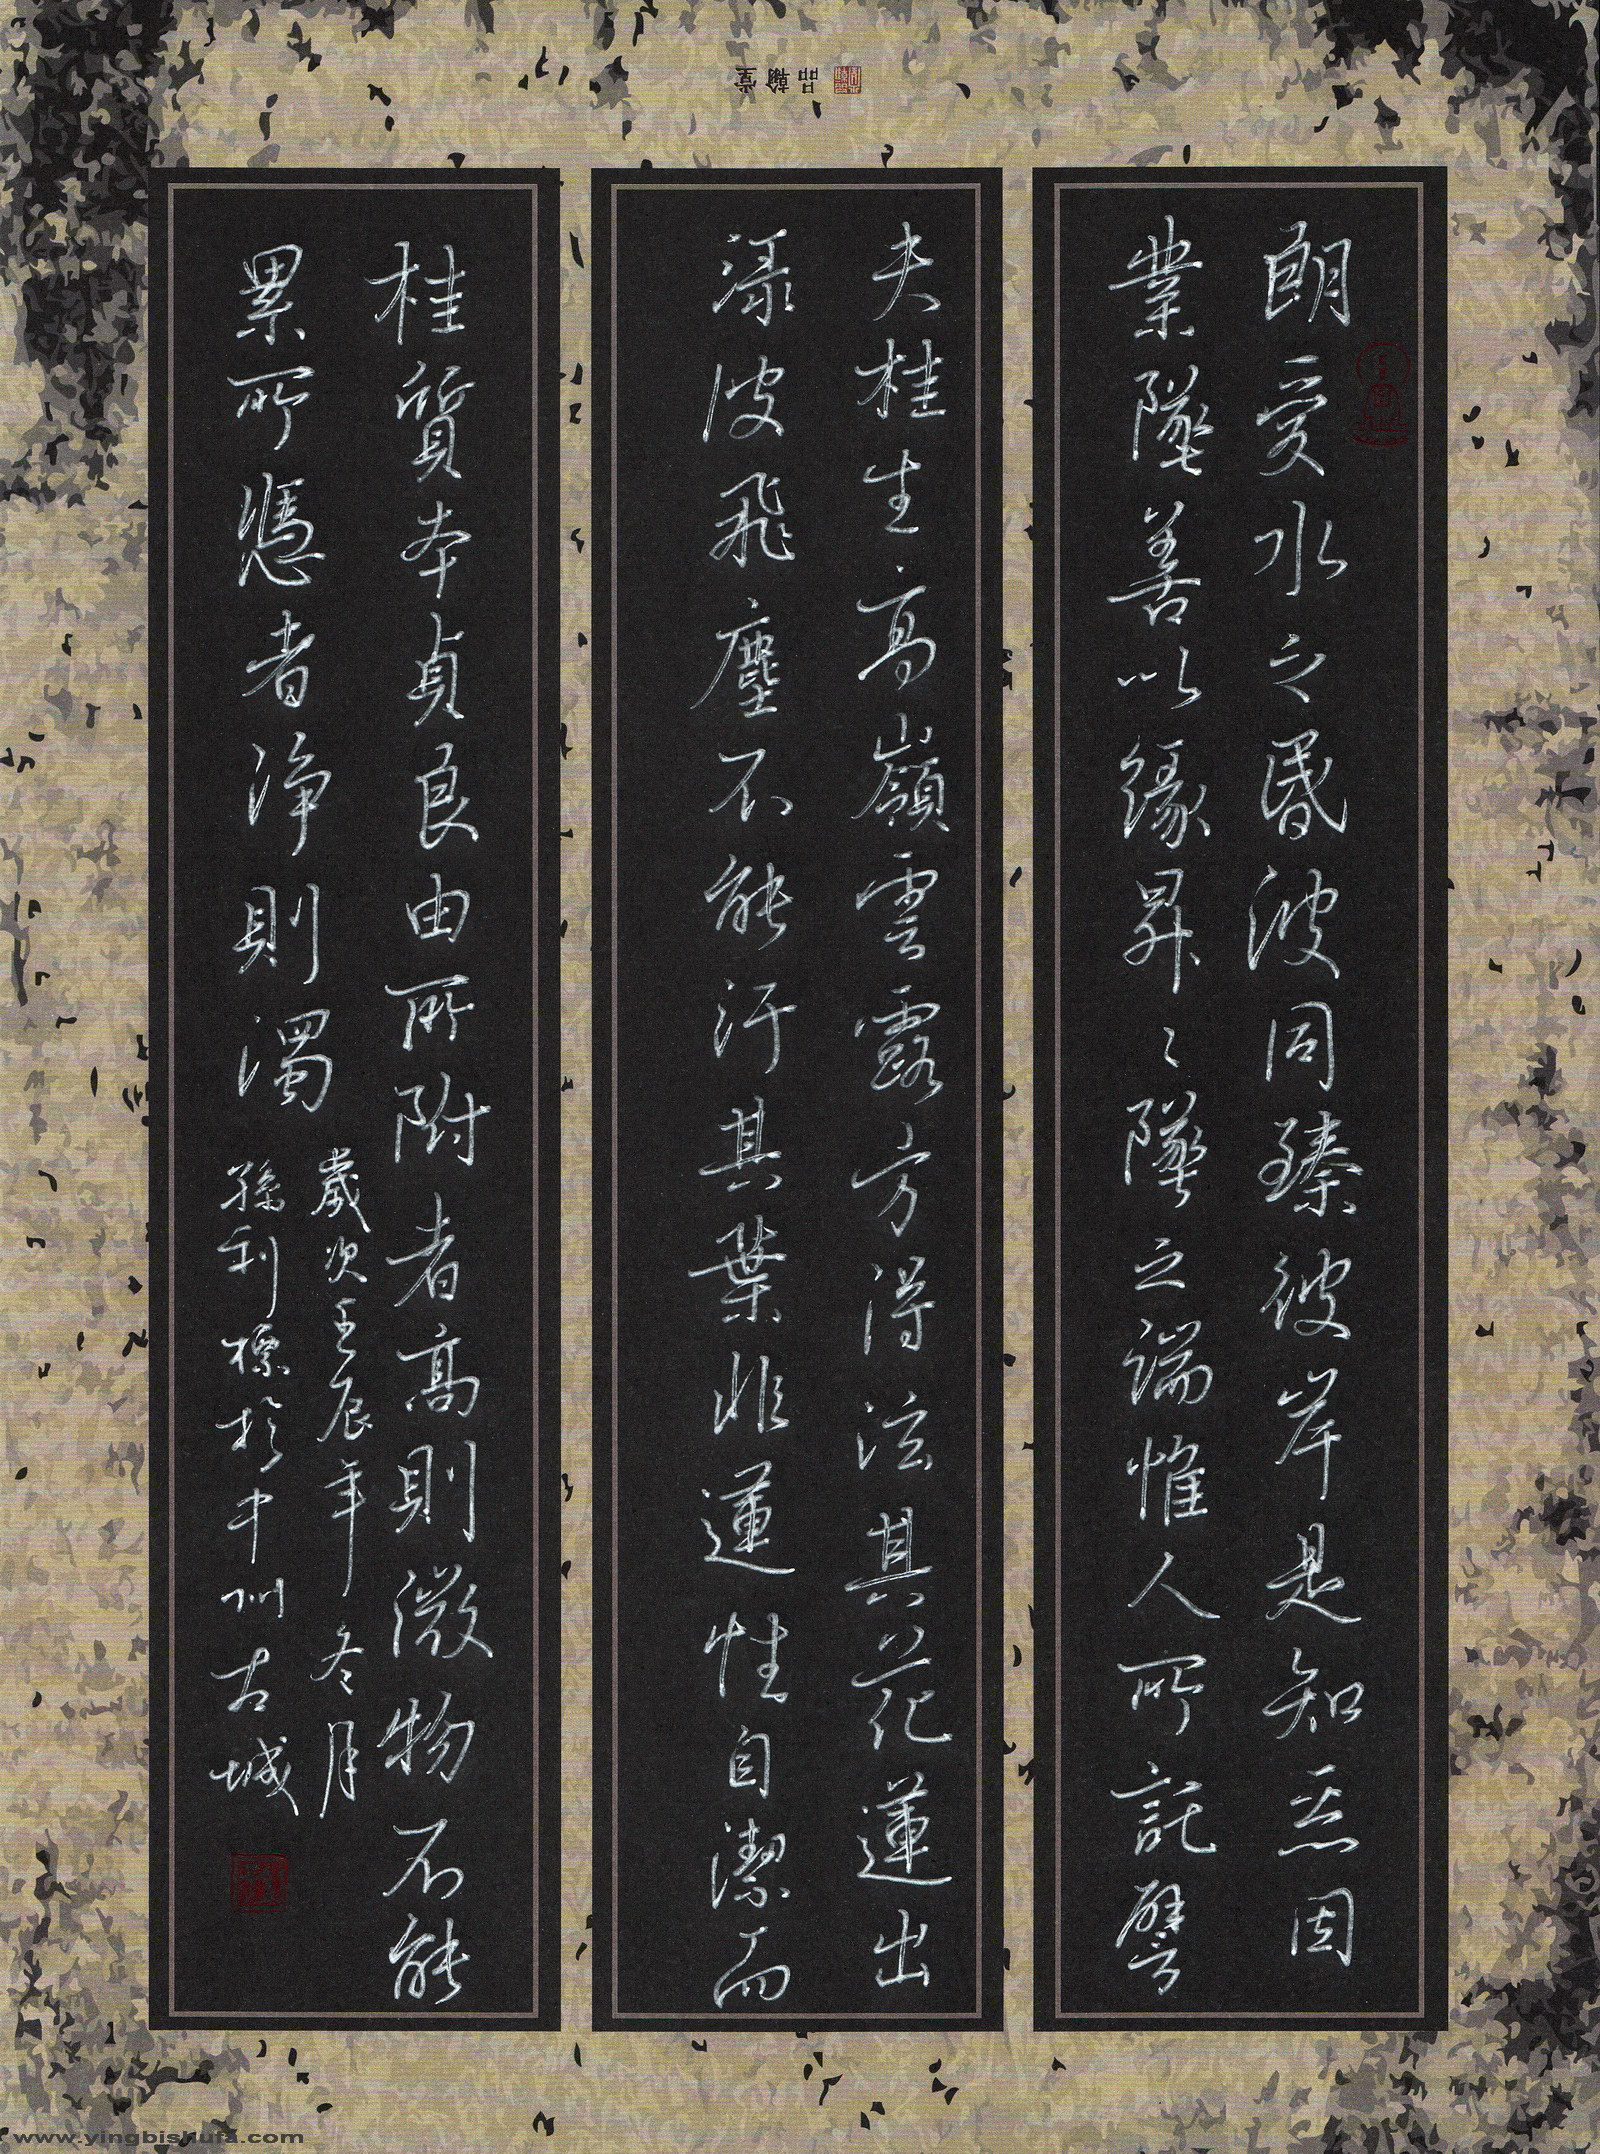 朗愛水之昬波同臻彼岸是知惡因
業墜善以緣昇々墜之端惟人所託譬
夫桂生高嶺雲露方得泫其花蓮出
渌波飛塵不能汙其葉非蓮性自潔而
桂質本貞良由所附者高則微物不能
累所憑者淨則濁
歲次壬辰年冬月
孫利標於中州古城
品翰堂
www.yingbishufa.com